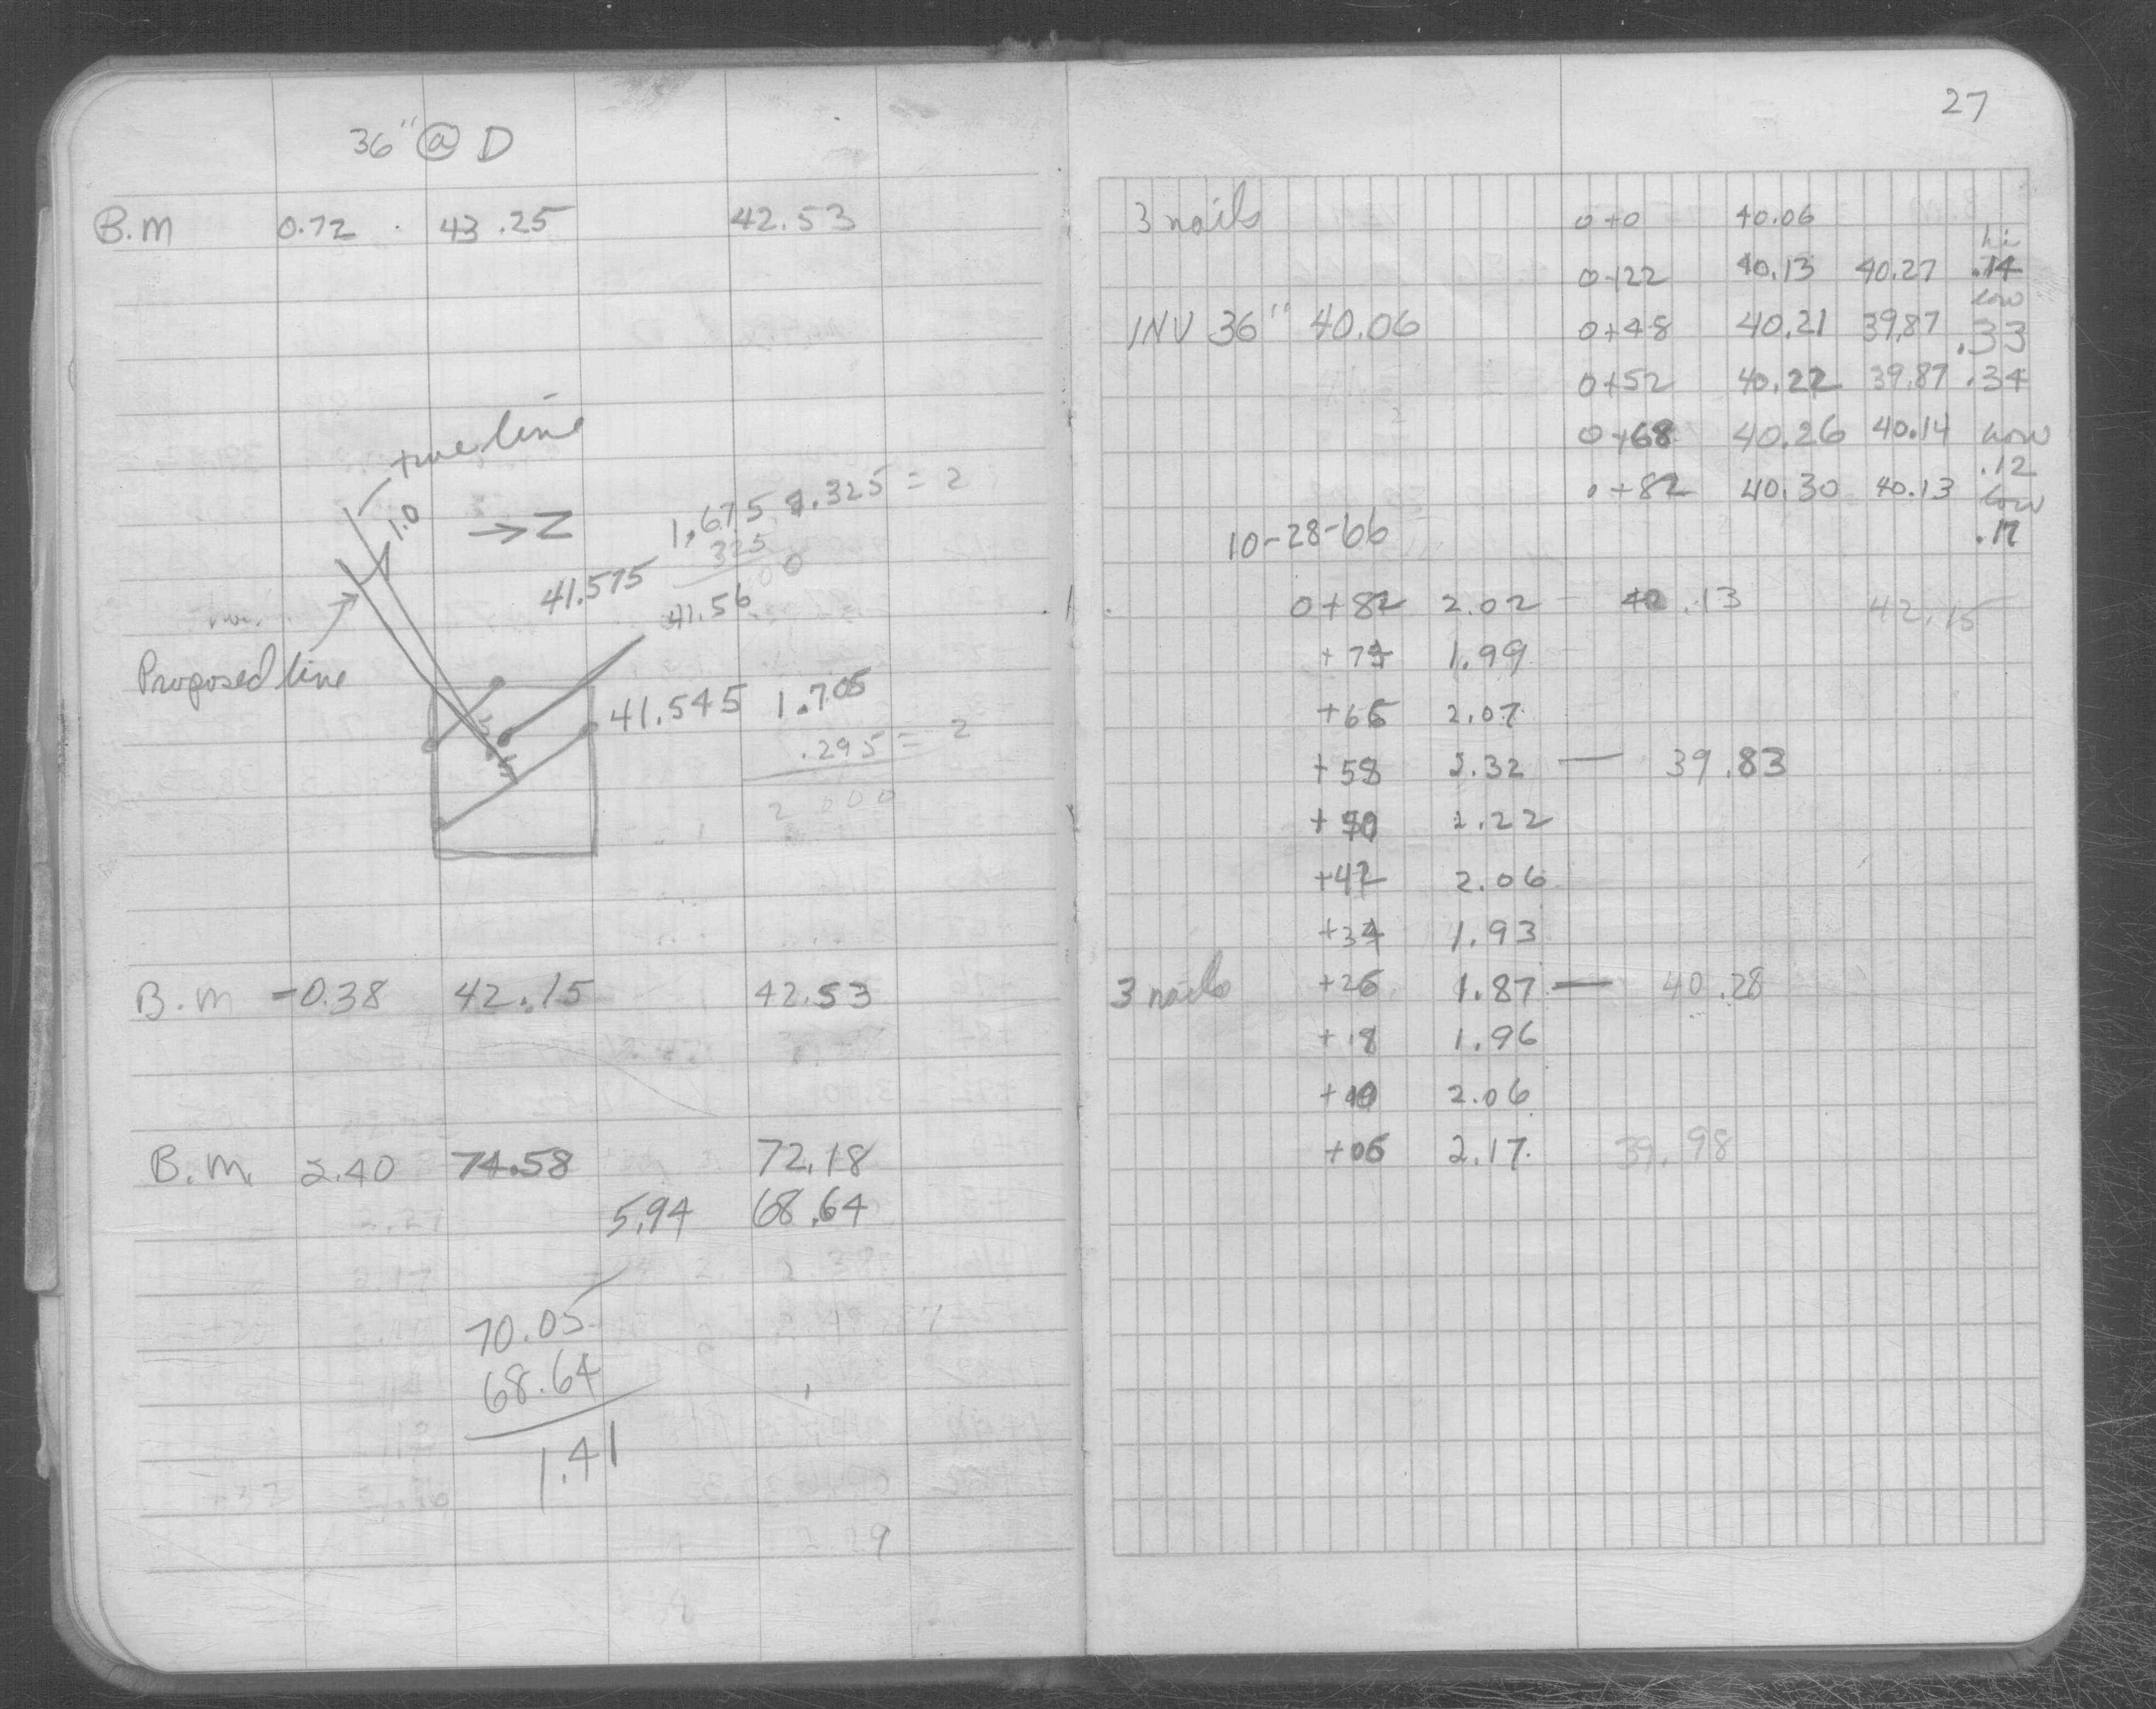 36" @ D
B.M 0.72 43.25 42.53
true line
1.0
→ Z
1.675 .325 = 2
325
41.575
41.56
Proposed line
41.545 1.705
.295 = 2
2 000
B.M -0.38 42.15 42.53
B.M. 2.40 74.58 72.18
5.94 68.64
70.05
68.64
1.41
27
3 nails 0+0 40.06
hi
0+22 40.13 40.27 .14
low
INV 36" 40.06 0+48 40.21 39.87 .33
0+52 40.22 39.87 .34
0+68 40.26 40.14 low
.12
0+82 40.30 40.13 low
.17
10-28-66
0+82 2.02 - 40.13 42.15
+74 1.99
+66 2.07
+58 2.32 — 39.83
+50 2.22
+42 2.06
+34 1.93
3 nails +26 1.87 — 40.28
+18 1.96
+10 2.06
+06 2.17 39.98